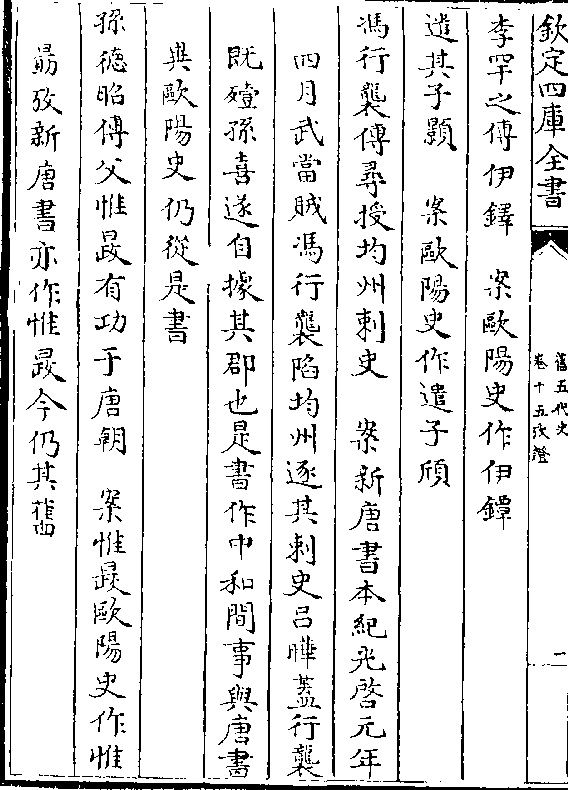 欽定四庫全書
舊五代史
卷十五攷證
一
李罕之傳伊鐸　案歐陽史作伊鐔
遣其子顥　案歐陽史作遣子頎
馮行襲傳尋授均州刺史　案新唐書本紀光啓元年
四月武當賊馮行襲陷均州逐其刺史呂曄蓋行襲
既殪孫喜遂自據其郡也是書作中和間事與唐書
異歐陽史仍從是書
孫德昭傳父惟晸有功于唐朝　案惟晸歐陽史作惟
勗攷新唐書亦作惟晸今仍其舊